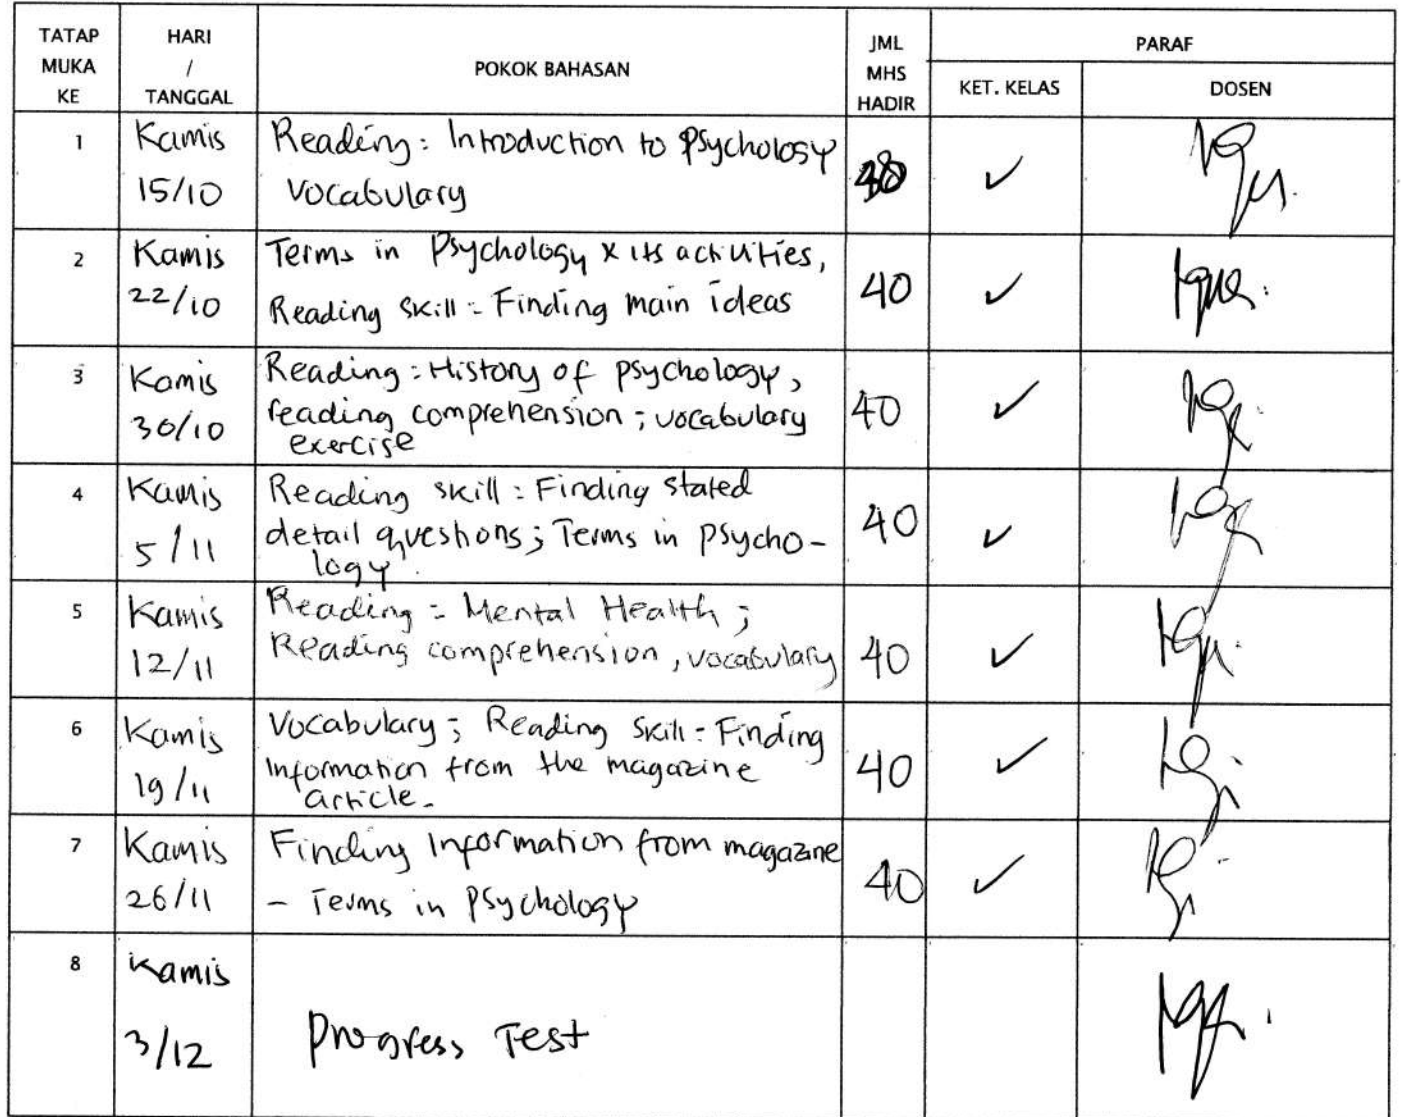 TATAP MUKA KE | HARI / TANGGAL | POKOK BAHASAN | JML MHS HADIR | PARAF
KET. KELAS | DOSEN
1 | Kamis 15/10 | Reading: Introduction to Psychology
vocabulary | ✓
2 | Kamis 22/10 | Terms in Psychology & its activities,
Reading skill: Finding main ideas | 40 | ✓
3 | Kamis 30/10 | Reading: History of psychology,
reading comprehension; vocabulary
exercise | 40 | ✓
4 | Kamis 5/11 | Reading skill: Finding stated
detail questions; Terms in psycho-
logy. | 40 | ✓
5 | Kamis 12/11 | Reading: Mental Health;
Reading comprehension, vocabulary | 40 | ✓
6 | Kamis 19/11 | Vocabulary; Reading skill: Finding
Information from the magazine
article. | 40 | ✓
7 | Kamis 26/11 | Finding Information from magazine
- Terms in Psychology | 40 | ✓
8 | Kamis 3/12 | Progress Test